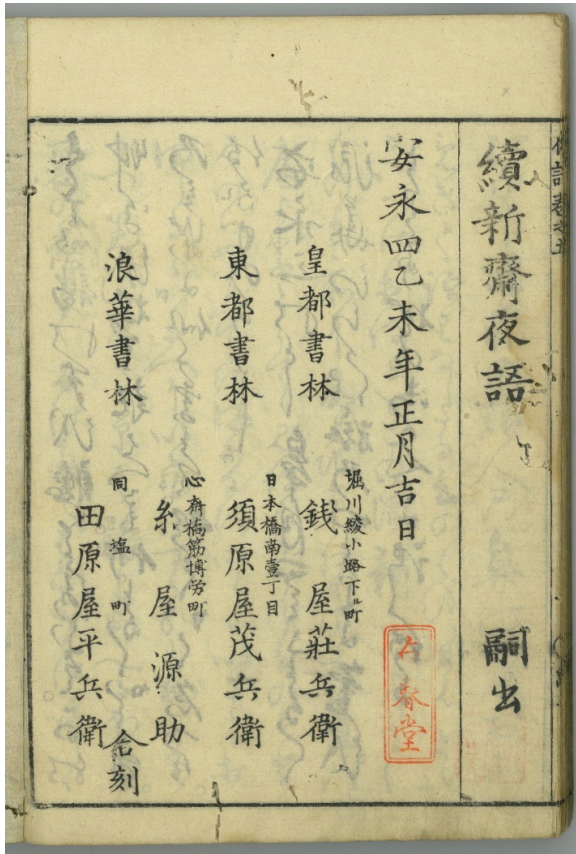 續新齋夜語　嗣出
安永四乙未年正月吉日
皇都書林
堀川綾小路下ル町
銭屋莊兵衛
東都書林
日本橋南壹丁目
須原屋茂兵衛
浪華書林
心斎橋筋博労町
糸屋源助
同塩町
田原屋平兵衛
合刻
春堂